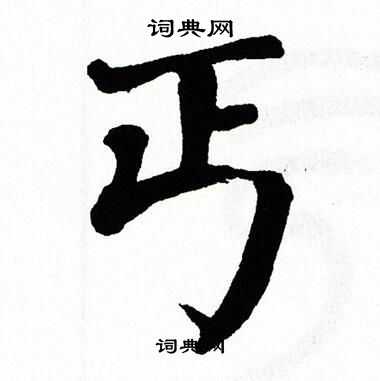 词典网
丐
词典网